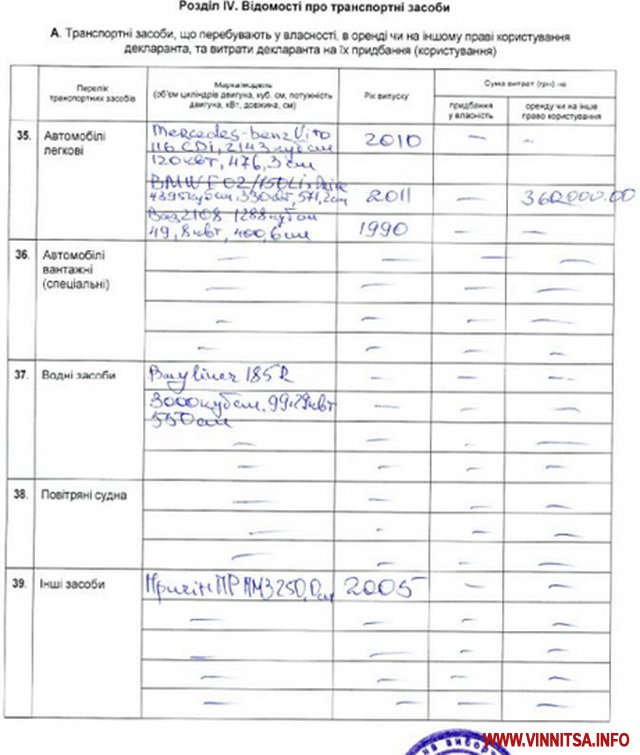 Розділ IV. Відомості про транспортні засоби
А. Транспортні засоби, що перебувають у власності, в оренді чи на іншому праві користування
декларанта, та витрати декларанта на їх придбання (користування)
Перелік транспортних засобів
Марка/модель (об'єм циліндрів двигуна, куб. см, потужність двигуна, кВт, довжина, см)
Рік випуску
Сума витрат (грн) на
придбання у власність
оренду чи на інше право користування
35. Автомобілі легкові
Mercedes-benz Vito 2010 — —
116 CDi, 2143 куб см
120 квт, 476,3 см
BMW F02/750Li xDrive
4395 куб см, 330 квт, 571,2 см 2011 — 360000.00
Ваз 2108 1288 куб см
49,8 квт, 400,6 см 1990 — —
36. Автомобілі вантажні (спеціальні)
— — — —
— — — —
— — — —
— — — —
37. Водні засоби
Bayliner 185 R — — —
3000 куб см, 99.29 квт — — —
550 см
— — —
— — — —
38. Повітряні судна
— — — —
— — — —
— — — —
39. Інші засоби
Причіп ПР ММЗ 2005 — —
— — — —
— — — —
— — — —
— — — —
на вибор
WWW.VINNITSA.INFO